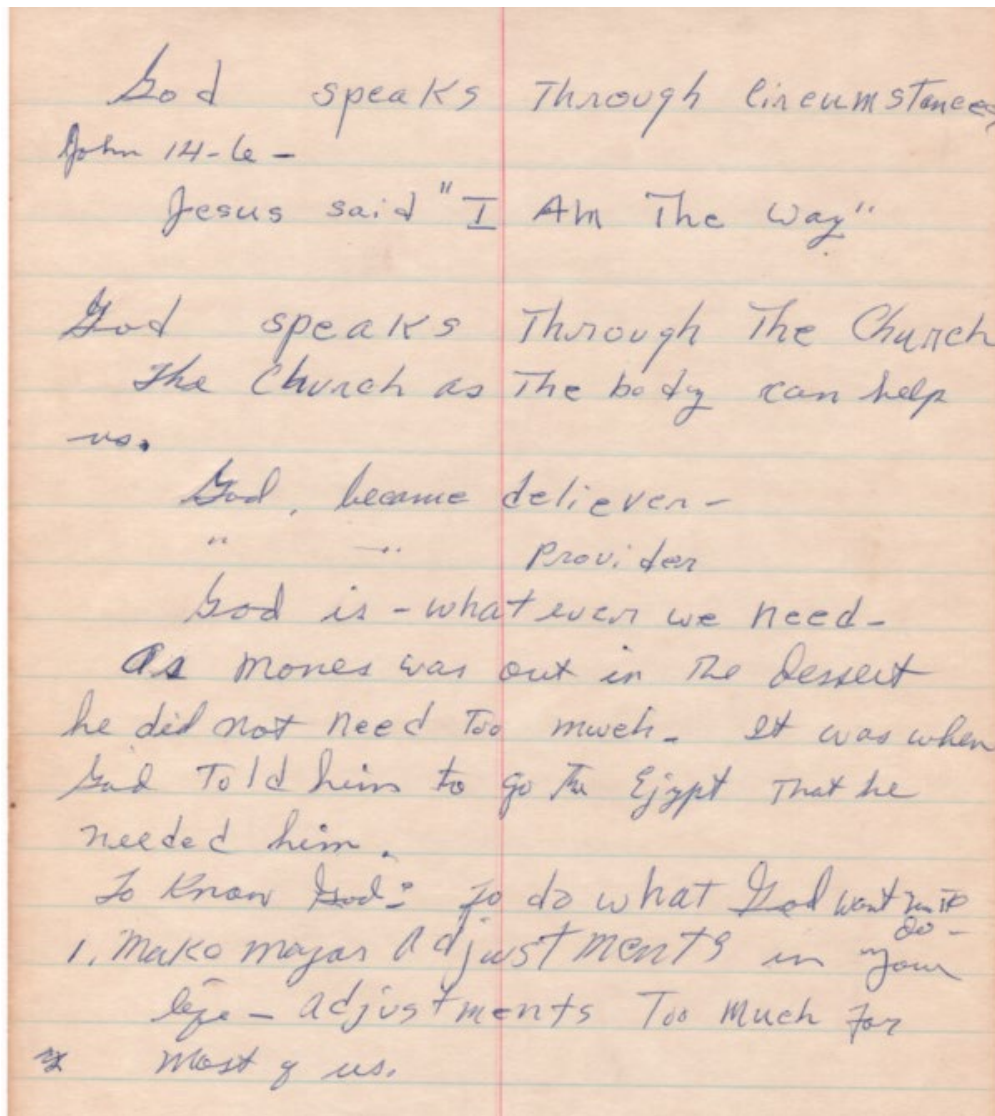 God speaks Through Circumstances
John 14-6-
Jesus said "I Am The Way"
God speaks Through The Church
The Church as The body can help
us.
God, became deliever-
" " Provider
God is - what ever we need-
As Moses was out in The Dessert
he did not need Too much. It was when
God Told him to go To Ejypt That he
needed him.
To Know God: To do what God want us to
do-
1. Make major adjustments in your
life - adjustments Too Much For
Most of us.